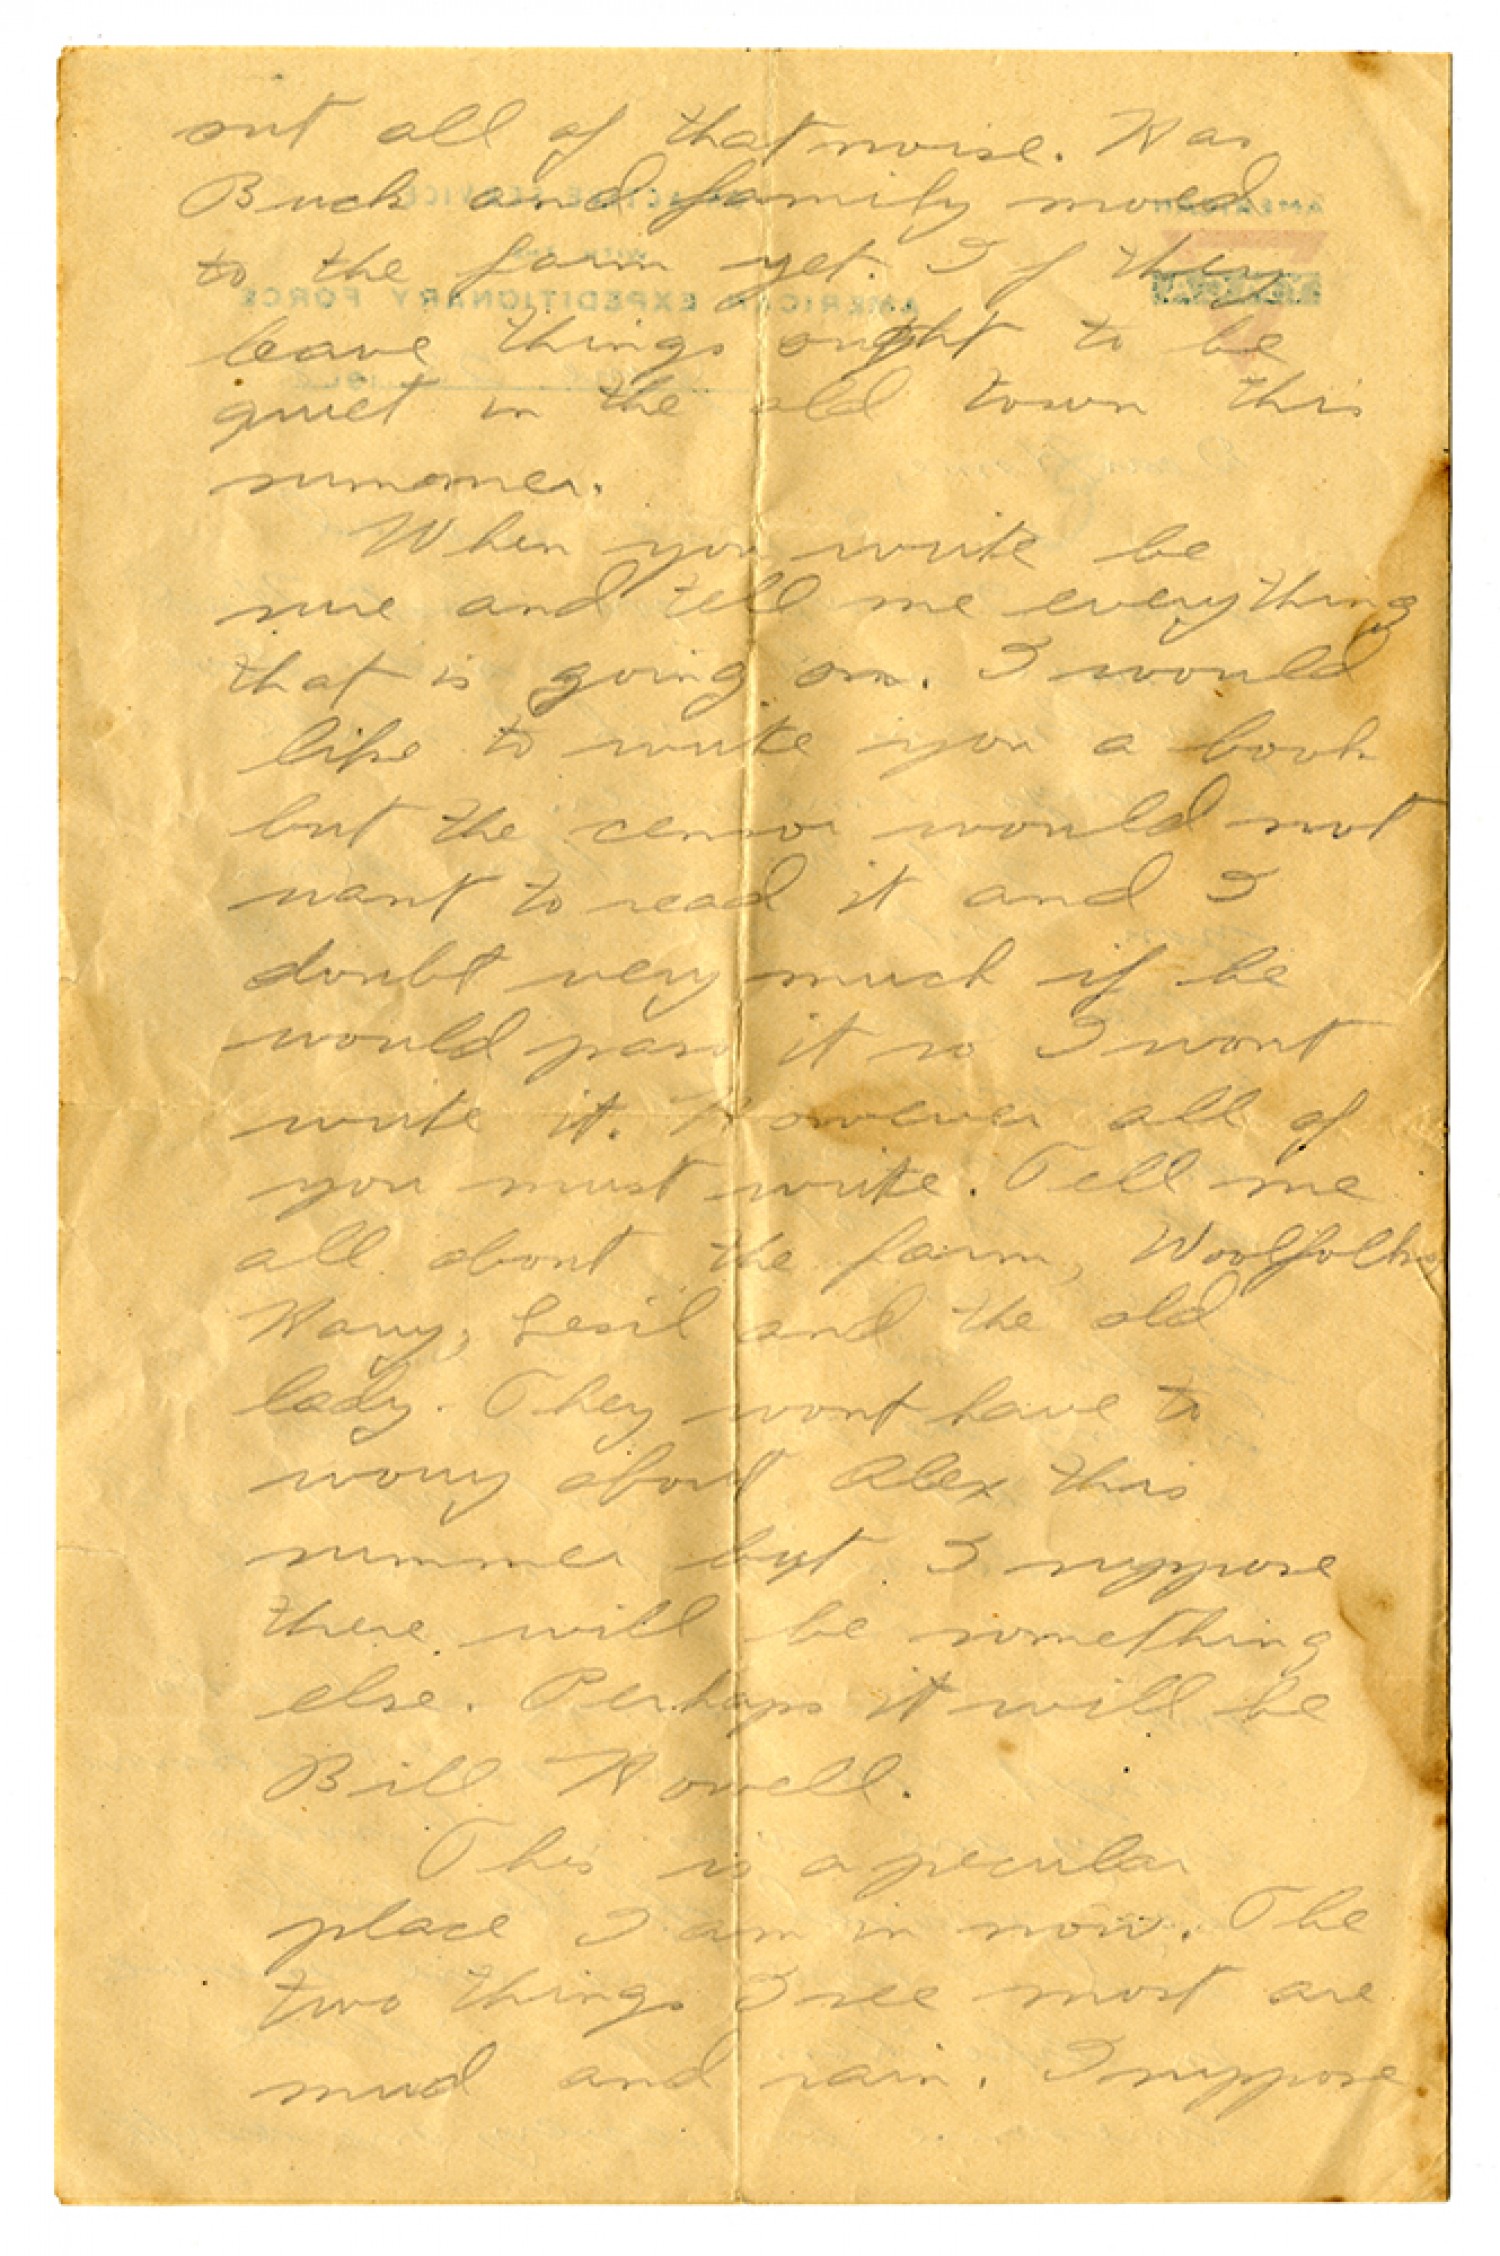 out all of that noise. Has
Buck and family moved
to the farm yet. If they
leave things ought to be
quiet in the old town this
summer.
When you write be
sure and tell me everything
that is going on. I would
like to write you a book
but the censor would not
want to read it and I
doubt very much if he
would pass it so I wont
write it. However all of
you must write. Tell me
all about the farm, Woolfolks
Harry, Lesil and the old
lady. They wont have to
worry about Alex this
summer but I suppose
there will be something
else. Perhaps it will be
Bill Howell.
This is a peculiar
place I am in now. The
two things I see most are
mud and rain. I suppose
AMERICAN
ACTIVE SERVICE
WITH THE
AMERICAN EXPEDITIONARY FORCE
YMCA